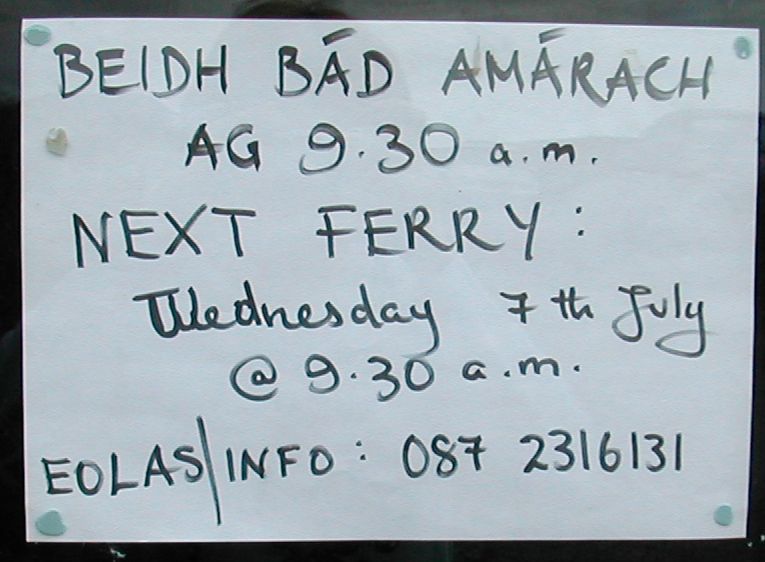 BEIDH BÁD AMÁRACH
AG 9.30 a.m.
NEXT FERRY:
Wednesday 7th July
@ 9.30 a.m.
EOLAS/INFO: 087 2316131